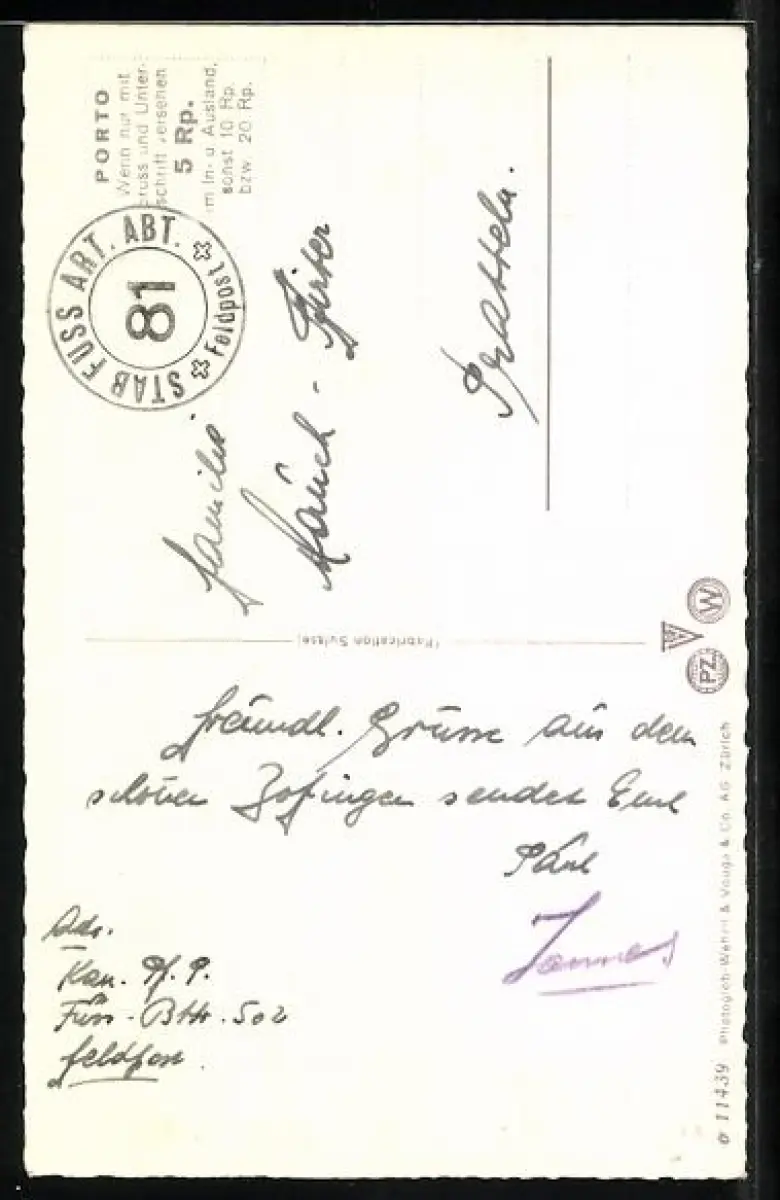 PORTO
Wenn nur mit
Gruss und Unter-
schrift versehen
5 Rp.
im In- u Ausland,
sonst 10 Rp.
bzw. 20 Rp.
STAB FUSS ART. ABT.
81
Feldpost
Familie
Pratteln.
(Fabrication Suisse)
W
PZ
freundl. Grüsse aus dem
schönen Zofingen sendet Euch
Paul
Adr.
Kan. Pf. P.
Füs - Bttr. 502
Feldpost
Photoglob-Wehrli & Vouga & Co. AG. Zürich
11439